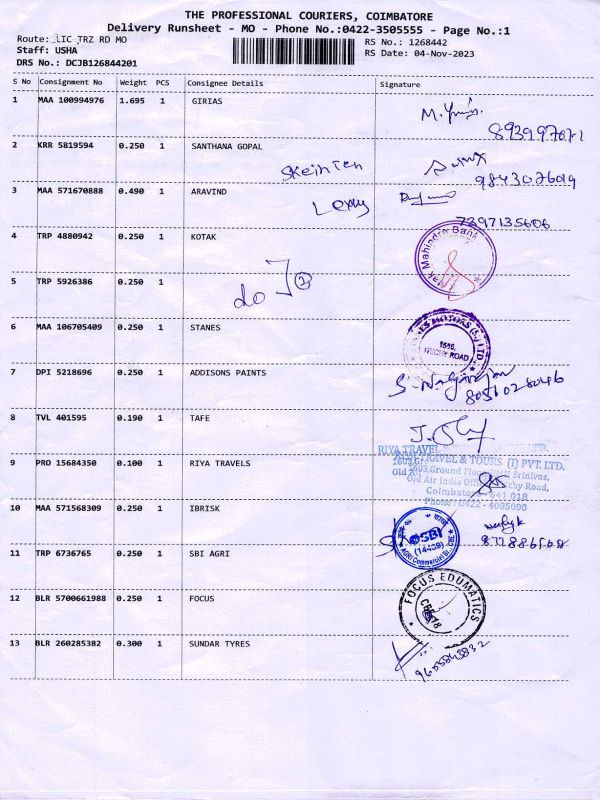 THE PROFESSIONAL COURIERS, COIMBATORE
Delivery Runsheet - MO - Phone No.:0422-3505555 - Page No.:1
Route: LIC TRZ RD MO
RS No.: 1268442
Staff: USHA
RS Date: 04-Nov-2023
DRS No.: DCJB126844201
S No Consignment No Weight PCS Consignee Details Signature
1 MAA 100994976 1.695 1 GIRIAS
2 KRR 5819594 0.250 1 SANTHANA GOPAL
9843027609
3 MAA 571670888 0.490 1 ARAVIND
7297135606
4 TRP 4880942 0.250 1 KOTAK
Mahindra Bank
5 TRP 5926386 0.250 1
do
6 MAA 106705409 0.250 1 STANES
MOTORS (S) LTD
TRICHY ROAD
7 DPI 5218696 0.250 1 ADDISONS PAINTS
8 TVL 401595 0.190 1 TAFE
9 PRO 15684350 0.100 1 RIYA TRAVELS
RIYA TRAVEL & TOURS (I) PVT. LTD.
Old Air India Office, Trichy Road,
Coimbatore - 641 018
Phone : 0422 - 4085000
10 MAA 571568309 0.250 1 IBRISK
SBI
AGRI Commercial
11 TRP 6736765 0.250 1 SBI AGRI
12 BLR 5700661988 0.250 1 FOCUS
FOCUS EDUMATICS
13 BLR 260285382 0.300 1 SUNDAR TYRES
9655843832